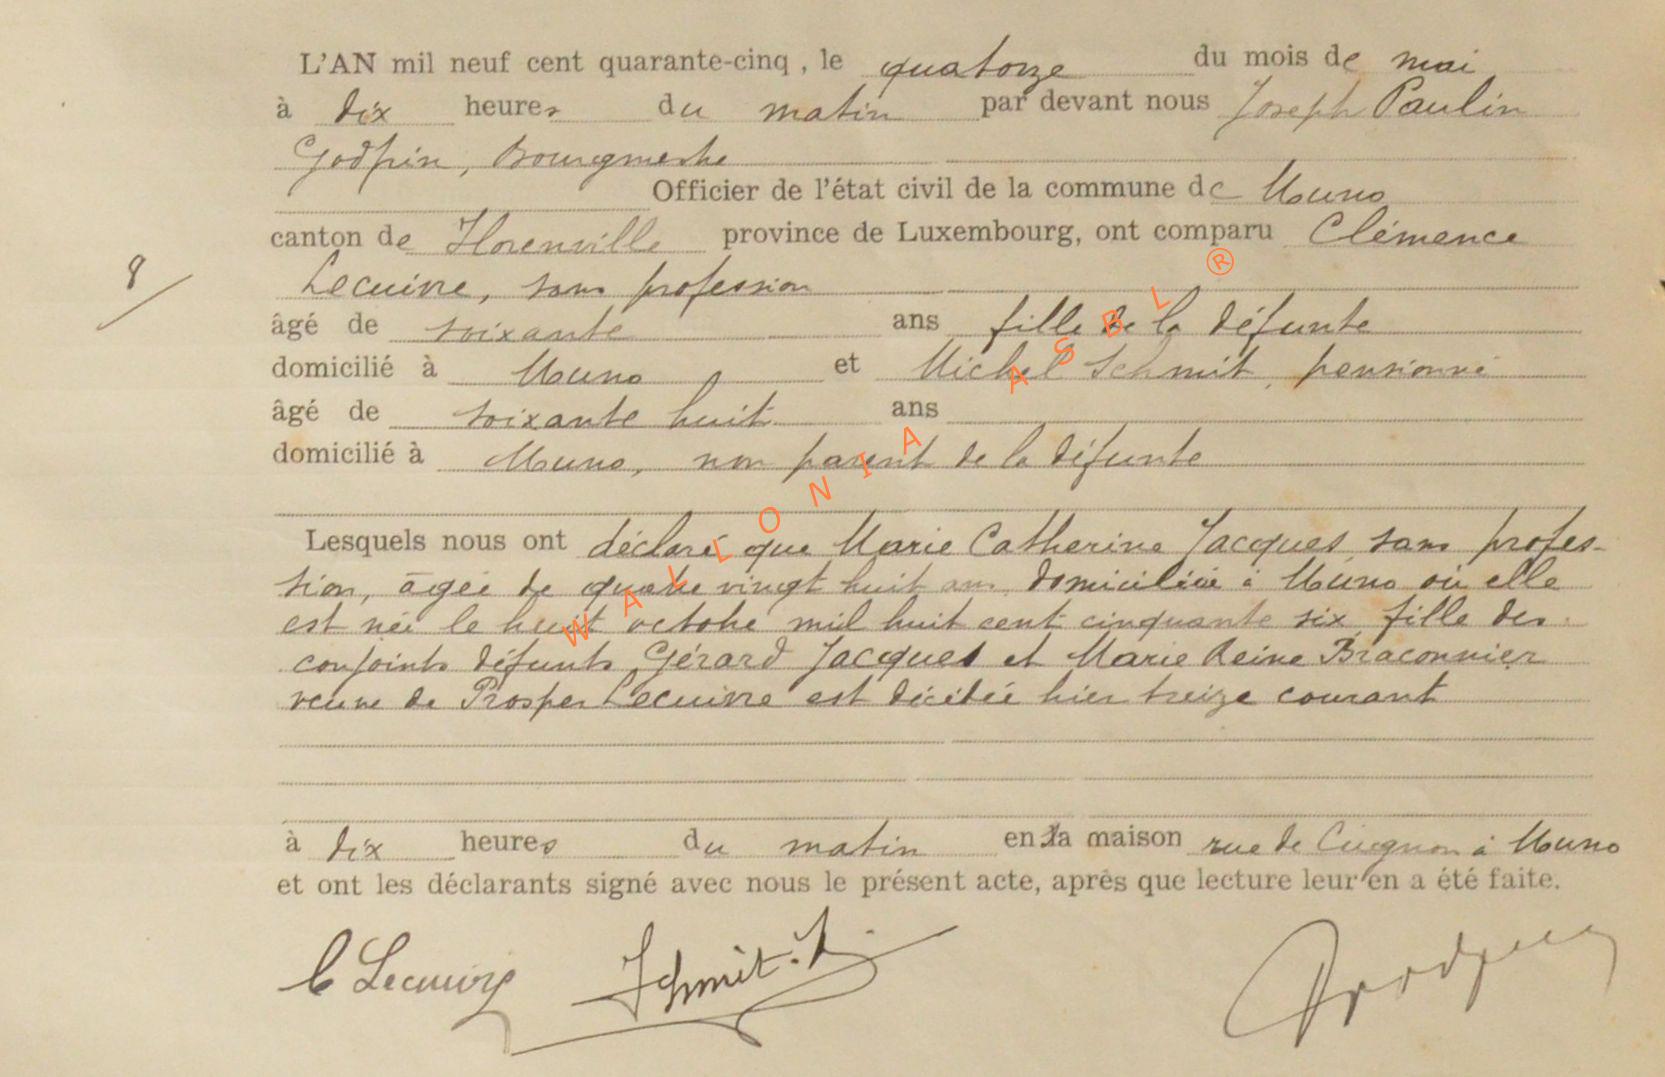 L'AN mil neuf cent quarante-cinq, le quatorze du mois de mai
à dix heures du matin par devant nous Joseph Paulin
Godfrin, Bourgmestre
Officier de l'état civil de la commune de Muno
canton de Florenville province de Luxembourg, ont comparu Clémence
Lecuivre, sans profession
8
âgé de soixante ans fille de la défunte
domicilié à Muno et Michel Schmit, pensionné
âgé de soixante huit ans
domicilié à Muno, non parent de la défunte
Lesquels nous ont déclaré que Marie Catherine Jacques sans profes-
sion, âgée de quatre vingt huit ans, domiciliée à Muno où elle
est née le huit octobre mil huit cent cinquante six, fille des
conjoints défunts Gérard Jacques et Marie Reine Braconnier
veuve de Prosper Lecuivre est décédée hier treize courant
à dix heures du matin en sa maison rue de Cugnon à Muno
et ont les déclarants signé avec nous le présent acte, après que lecture leur en a été faite.
C Lecuivre Schmit.
WALLONIA ASBL ®